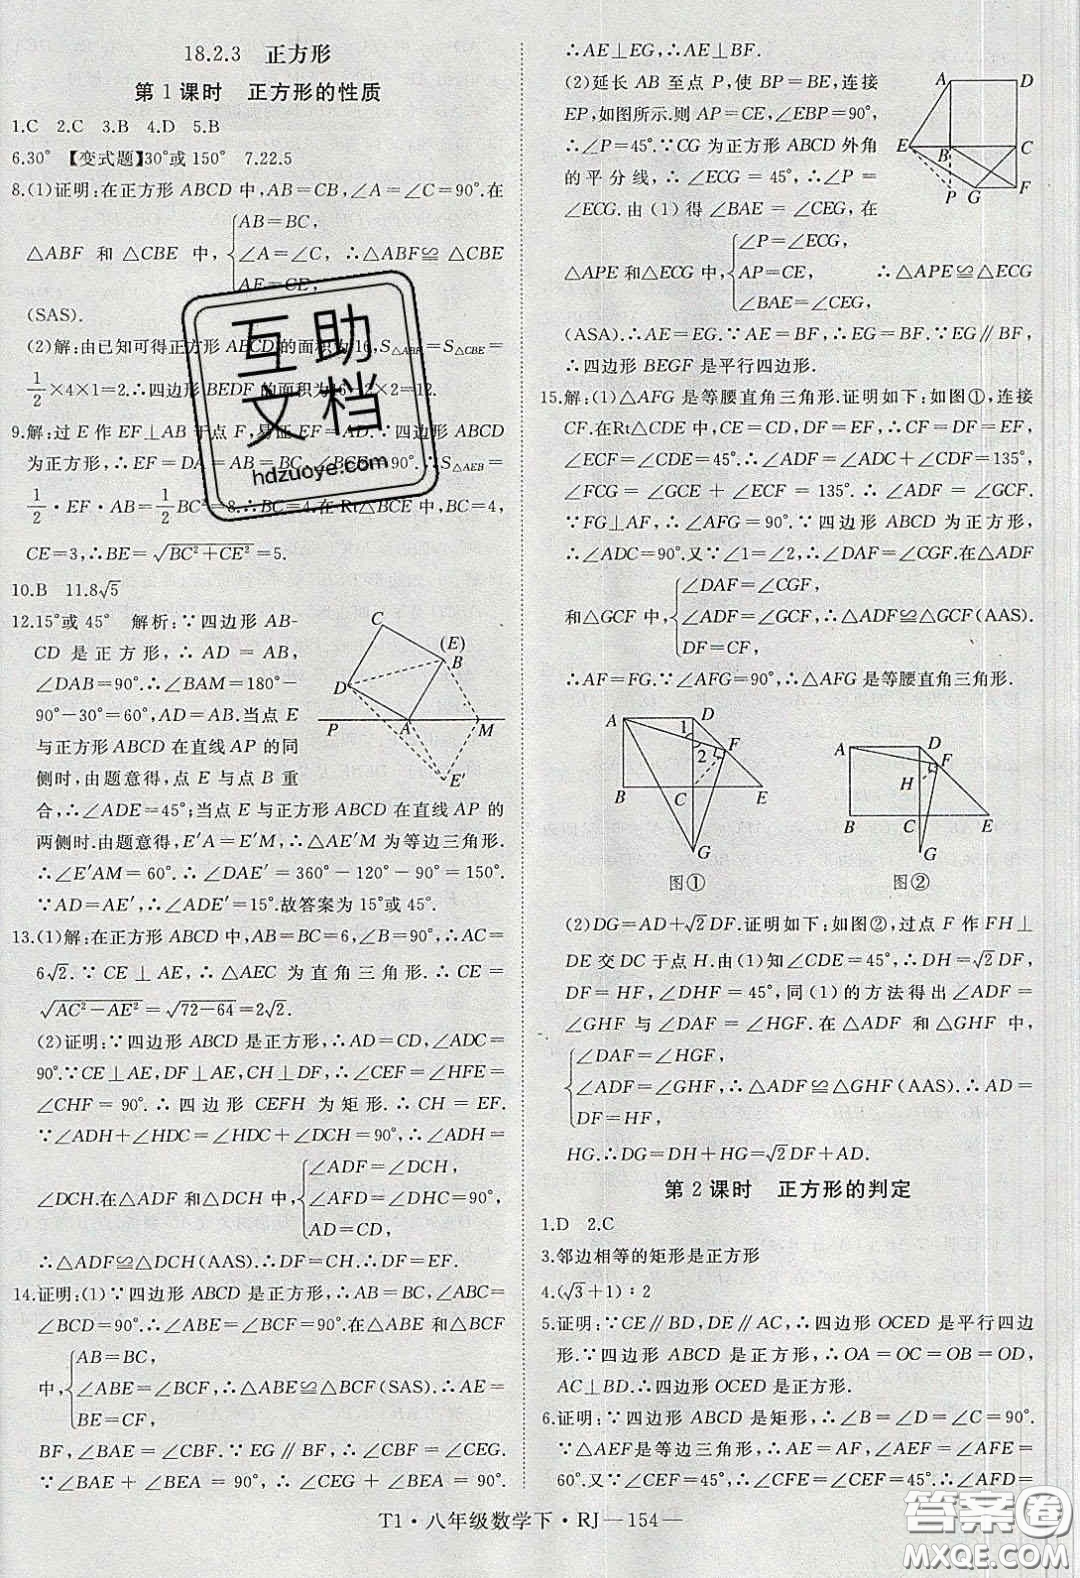 18.2.3　正方形
第1课时　正方形的性质
1.C　2.C　3.B　4.D　5.B
6.30°　【变式题】30°或150°　7.22.5
8.(1)证明:在正方形ABCD中,AB=CB,∠A=∠C=90°.在
△ABF 和 △CBE 中, { AB=BC, ∠A=∠C, AE=CE, ∴△ABF≌△CBE
(SAS).
(2)解:由已知可得正方形ABCD的面积为16,S△ABF=S△CBE=
1/2×4×1=2.∴四边形BEDF的面积为16-2×2=12.
9.解:过E作EF⊥AB于点F,易证EF=AD.∵四边形ABCD
为正方形,∴EF=DA=AB=BC,∠BCD=90°.∴S△AEB=
1/2·EF·AB=1/2BC²=8.∴BC=4.在Rt△BCE中,BC=4,
CE=3,∴BE=√(BC²+CE²)=5.
10.B　11.8√5
12.15°或45°　解析:∵四边形AB-
CD是正方形,∴AD=AB,
∠DAB=90°.∴∠BAM=180°-
90°-30°=60°,AD=AB.当点E
与正方形ABCD在直线AP的同
侧时,由题意得,点E与点B重
合,∴∠ADE=45°;当点E与正方形ABCD在直线AP的
两侧时.由题意得,E′A=E′M,∴△AE′M为等边三角形.
∴∠E′AM=60°.∴∠DAE′=360°-120°-90°=150°.
∵AD=AE′,∴∠ADE′=15°.故答案为15°或45°.
C (E) B D P A M E′
13.(1)解:在正方形ABCD中,AB=BC=6,∠B=90°,∴AC=
6√2.∵CE⊥AE,∴△AEC为直角三角形.∴CE=
√(AC²-AE²)=√(72-64)=2√2.
(2)证明:∵四边形ABCD是正方形,∴AD=CD,∠ADC=
90°.∵CE⊥AE,DF⊥AE,CH⊥DF,∴∠CEF=∠HFE=
∠CHF=90°.∴四边形CEFH为矩形.∴CH=EF.
∵∠ADH+∠HDC=∠HDC+∠DCH=90°,∴∠ADH=
∠DCH.在△ADF和△DCH中, { ∠ADF=∠DCH, ∠AFD=∠DHC=90°, AD=CD,
∴△ADF≌△DCH(AAS).∴DF=CH.∴DF=EF.
14.证明:(1)∵四边形ABCD是正方形,∴AB=BC,∠ABC=
∠BCD=90°.∴∠ABE=∠BCF=90°.在△ABE和△BCF
中, { AB=BC, ∠ABE=∠BCF, BE=CF, ∴△ABE≌△BCF(SAS).∴AE=
BF,∠BAE=∠CBF.∵EG∥BF,∴∠CBF=∠CEG.
∵∠BAE+∠BEA=90°,∴∠CEG+∠BEA=90°.
∴AE⊥EG,∴AE⊥BF.
(2)延长AB至点P,使BP=BE,连接
EP,如图所示.则AP=CE,∠EBP=90°.
∴∠P=45°.∵CG为正方形ABCD外角
的平分线,∴∠ECG=45°,∴∠P=
∠ECG.由(1)得∠BAE=∠CEG,在
△APE和△ECG中, { ∠P=∠ECG, AP=CE, ∠BAE=∠CEG, ∴△APE≌△ECG
(ASA).∴AE=EG.∵AE=BF,∴EG=BF.∵EG∥BF,
∴四边形BEGF是平行四边形.
A D E B C P G F
15.解:(1)△AFG是等腰直角三角形.证明如下:如图①,连接
CF.在Rt△CDE中,CE=CD,DF=EF,∴CF=DF=EF.
∴∠ECF=∠CDE=45°.∴∠ADF=∠ADC+∠CDF=135°,
∠FCG=∠GCE+∠ECF=135°.∴∠ADF=∠GCF.
∵FG⊥AF,∴∠AFG=90°.∵四边形ABCD为正方形,
∴∠ADC=90°.又∵∠1=∠2,∴∠DAF=∠CGF.在△ADF
和△GCF中, { ∠DAF=∠CGF, ∠ADF=∠GCF, DF=CF, ∴△ADF≌△GCF(AAS).
∴AF=FG.∵∠AFG=90°,∴△AFG是等腰直角三角形.
A D 1 2 F B C E G
图①
A D F H B C E G
图②
(2)DG=AD+√2DF.证明如下:如图②,过点F作FH⊥
DE交DC于点H.由(1)知∠CDE=45°,∴DH=√2DF,
DF=HF,∠DHF=45°,同(1)的方法得出∠ADF=
∠GHF与∠DAF=∠HGF.在△ADF和△GHF中,
{ ∠DAF=∠HGF, ∠ADF=∠GHF, DF=HF, ∴△ADF≌△GHF(AAS).∴AD=
HG.∴DG=DH+HG=√2DF+AD.
第2课时　正方形的判定
1.D　2.C
3.邻边相等的矩形是正方形
4.(√3+1)∶2
5.证明:∵CE∥BD,DE∥AC,∴四边形OCED是平行四边
形.∵四边形ABCD是正方形,∴OA=OC=OB=OD,
AC⊥BD.∴四边形OCED是正方形.
6.证明:∵四边形ABCD是矩形,∴∠B=∠D=∠C=90°.
∵△AEF是等边三角形,∴AE=AF,∠AEF=∠AFE=
60°.又∵∠CEF=45°,∴∠CFE=∠CEF=45°.∴∠AFD=
T1·八年级数学下·RJ—154—
互助文档
hdzuoye.com
答案圈
MXQE.COM